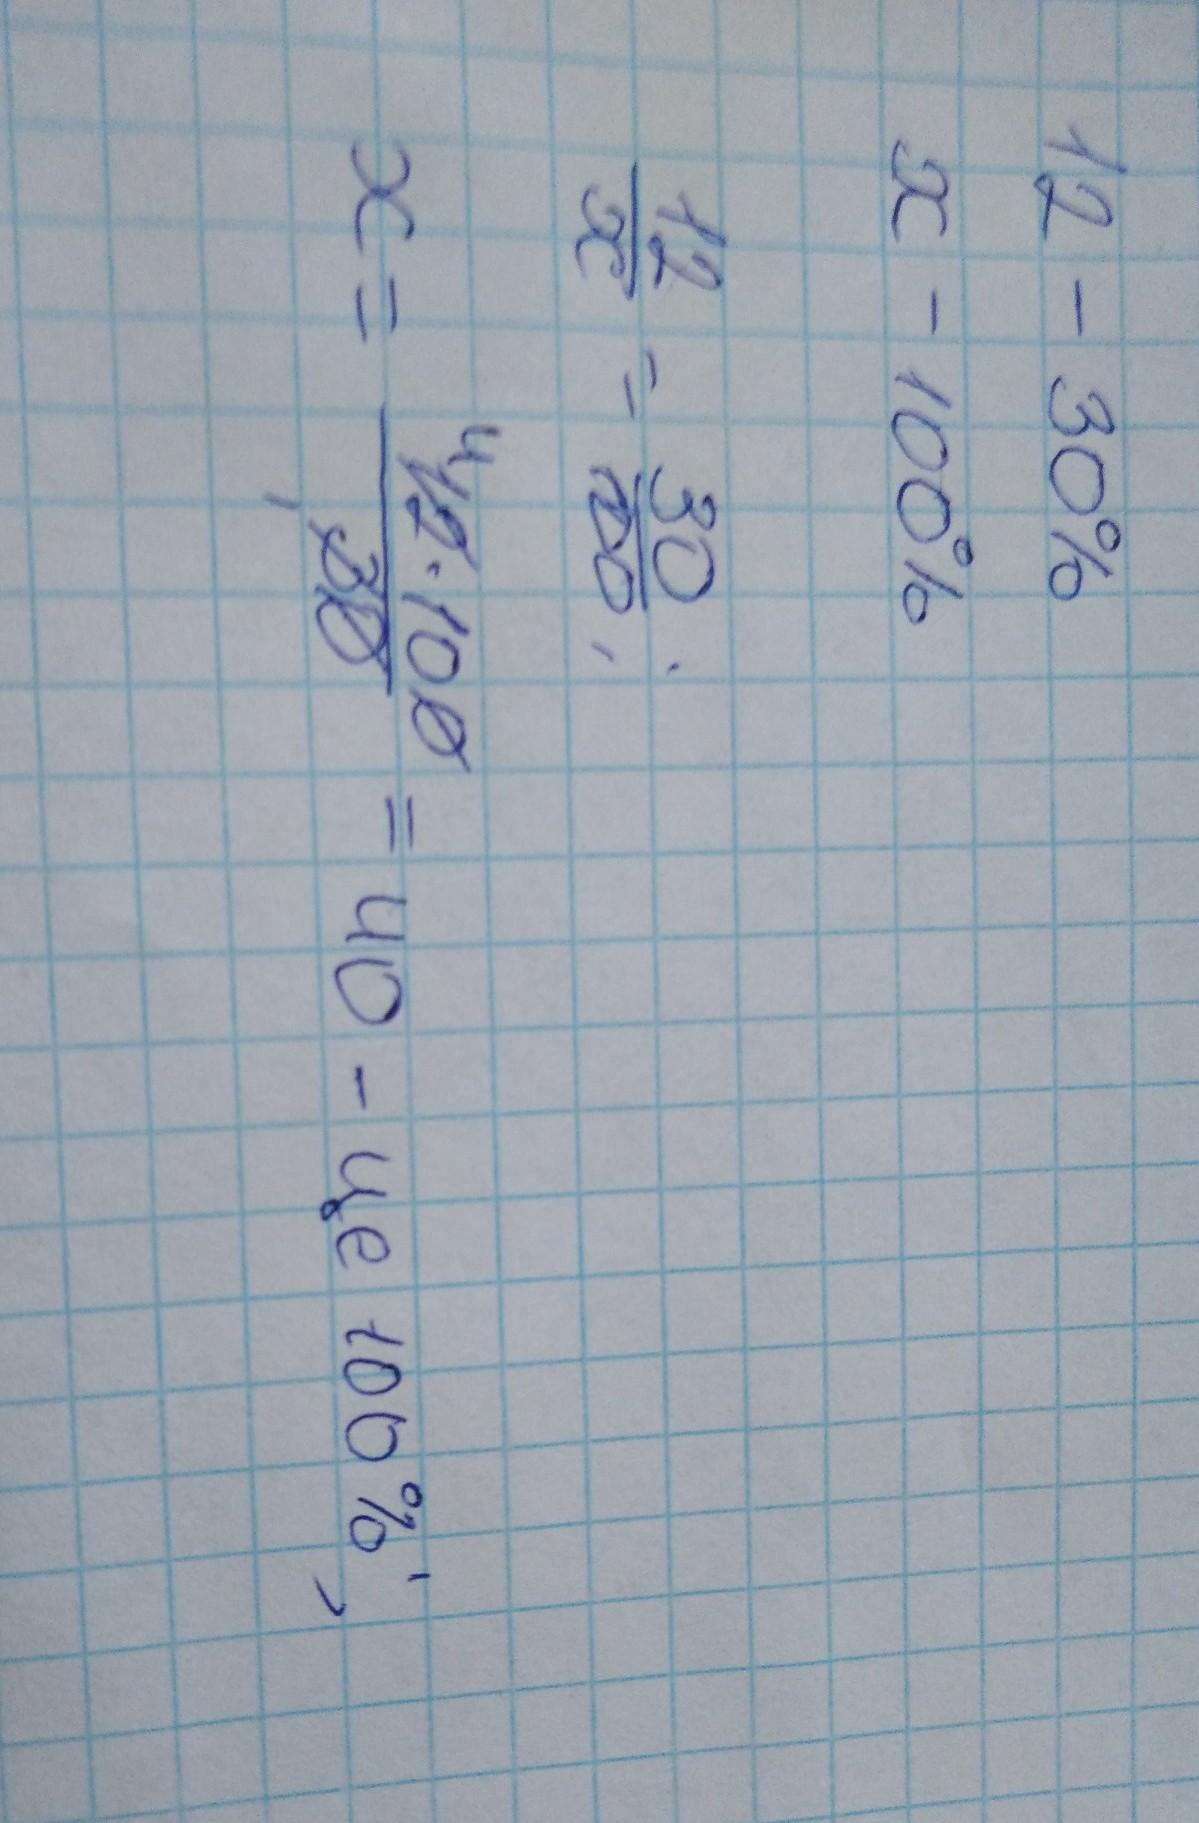 12 - 30%
x - 100%
12/x = 30/100;
x = 12·100/30 = 40 - це 100%;
4
1